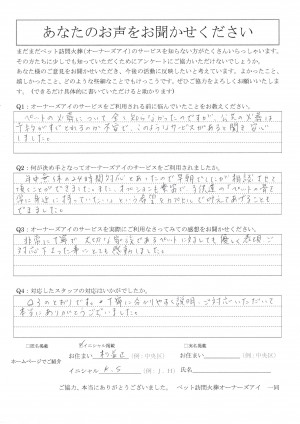 あなたのお声をお聞かせください
まだまだペット訪問火葬(オーナーズアイ)のサービスを知らない方がたくさんいらっしゃいます。
そのかたに少しでも知っていただくためにアンケートにご協力いただけないでしょうか。
あなた様のご意見をお聞かせいただき、今後の活動に反映したいと考えています。よかったこと、
嬉しかったこと、どのような些細なことでもけっこうです。ぜひご協力をよろしくお願いいたします。
(できるだけ具体的に書いていただけると助かります)
Q1：オーナーズアイのサービスをご利用される前に悩んでいたことをお教えください。
ペットの火葬について全く知らなかったのですが、
このようなサービスがあると聞き安心
しました。
Q2：何が決め手となってオーナーズアイのサービスをご利用されましたか。
年中無休の24時間対応とあったので早朝でしたが相談させて
頂くことができました。また、オプションも豊富で
常に身近に持っていたいという希望を
できました。
Q3：オーナーズアイのサービスを実際にご利用なさってみての感想をお聞かせください。
非常に丁寧で大切な家族であるペットに対しても
対応下さった事にとても感動しました。
Q4：対応したスタッフの対応はいかがでしたか。
Q3のとおりですが、丁寧に分かりやすく説明・ご対応いただいて
本当にありがとうございました。
□匿名掲載
イニシャル掲載
□実名掲載
ホームページでご紹介
お住まい
(例:中央区)
お住まい
(例:中央区)
イニシャル K.S
(例:J.H)
氏名
ご協力、本当にありがとうございました。 ペット訪問火葬オーナーズアイ 一同